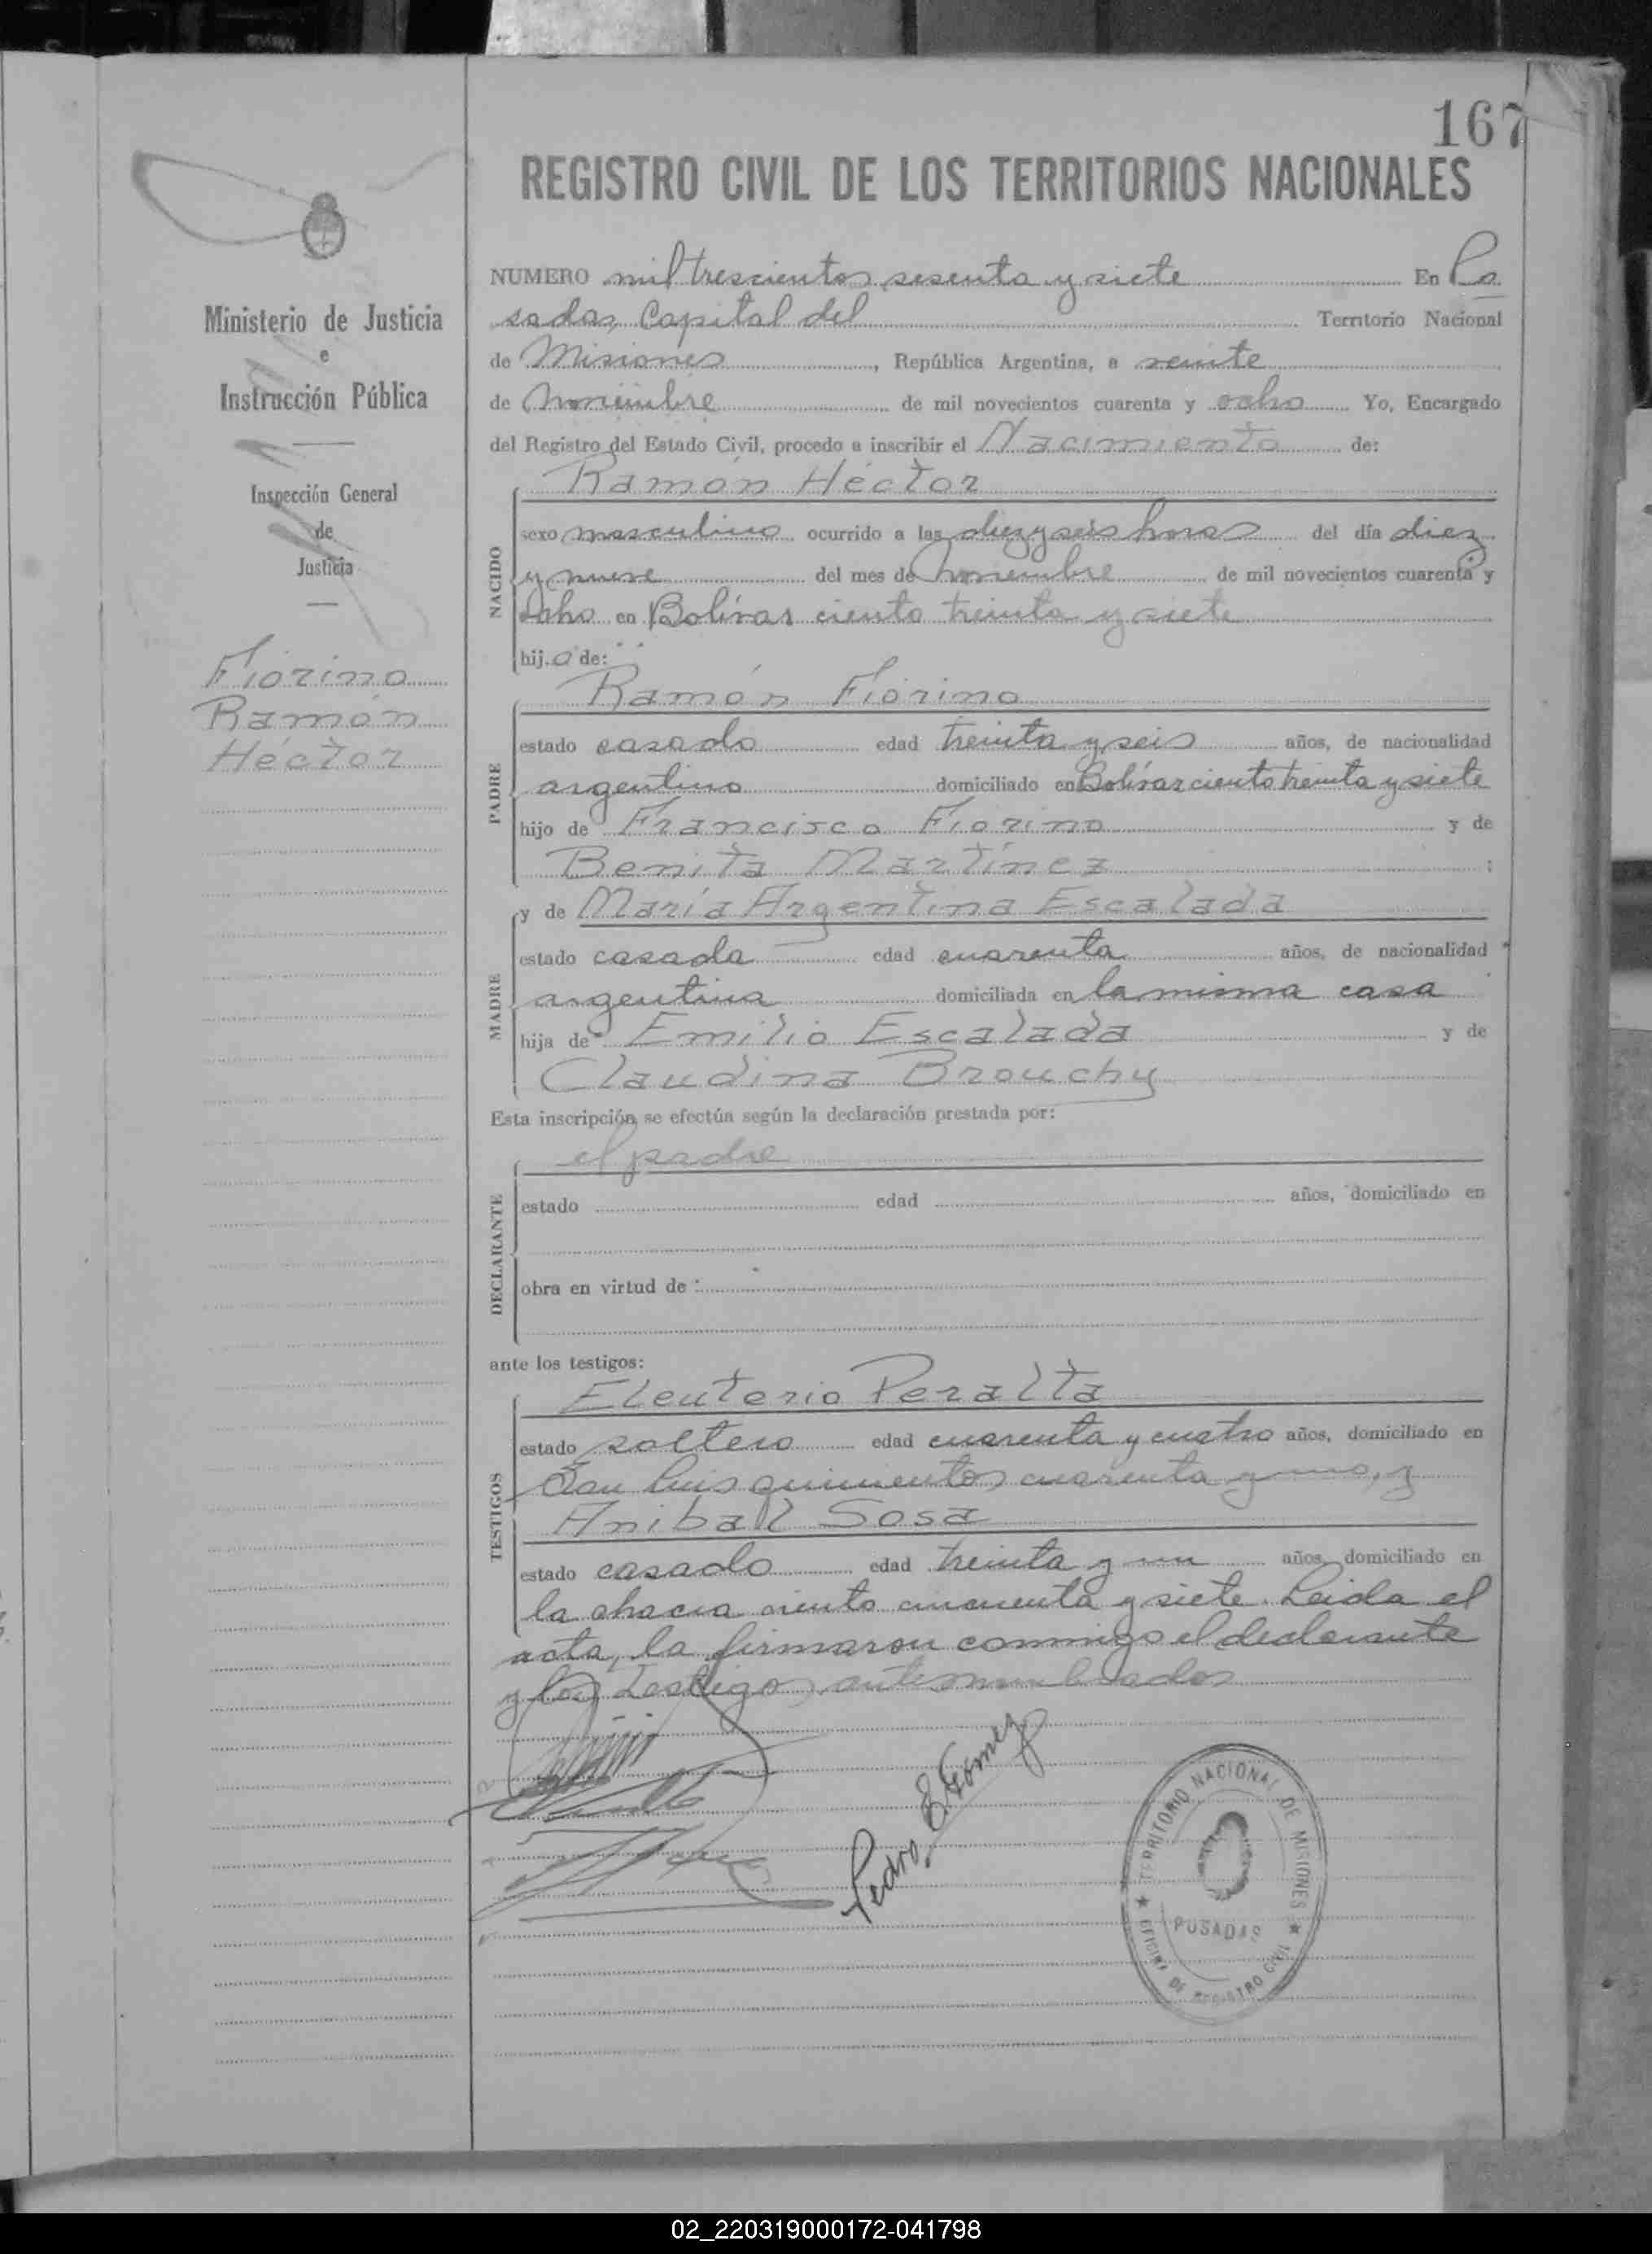 167
REGISTRO CIVIL DE LOS TERRITORIOS NACIONALES
Ministerio de Justicia
e
Instrucción Pública
Inspección General
de
Justicia
Fiorino
Ramón
Héctor
NUMERO mil trescientos sesenta y siete En Po
sadas, Capital del Territorio Nacional
de Misiones, República Argentina, a veinte
de noviembre de mil novecientos cuarenta y ocho Yo, Encargado
del Registro del Estado Civil, procedo a inscribir el Nacimiento de:
Ramón Héctor
NACIDO
sexo masculino ocurrido a las diez y seis horas del día diez
y nueve del mes de noviembre de mil novecientos cuarenta y
ocho en Bolívar ciento treinta y siete
hijo de:
Ramón Fiorino
PADRE
estado casado edad treinta y seis años, de nacionalidad
argentino domiciliado en Bolívar ciento treinta y siete
hijo de Francisco Fiorino y de
Benita Martínez ;
y de María Argentina Escalada
MADRE
estado casada edad cuarenta años, de nacionalidad
argentina domiciliada en la misma casa
hija de Emilio Escalada y de
Claudina Brouchy
Esta inscripción se efectúa según la declaración prestada por:
el padre
DECLARANTE
estado edad años, domiciliado en
obra en virtud de :
ante los testigos:
Eleuterio Peralta
TESTIGOS
estado soltero edad cuarenta y cuatro años, domiciliado en
San Luis quinientos cuarenta y uno, y
Anibal Sosa
estado casado edad treinta y un años, domiciliado en
la chacra ciento cincuenta y siete. Leida el
acta, la firmaron conmigo el declarante
y los testigos antenombrados
Pedro E. Gómez
TERRITORIO NACIONAL DE MISIONES
POSADAS
OFICINA DE REGISTRO CIVIL
02_220319000172-041798